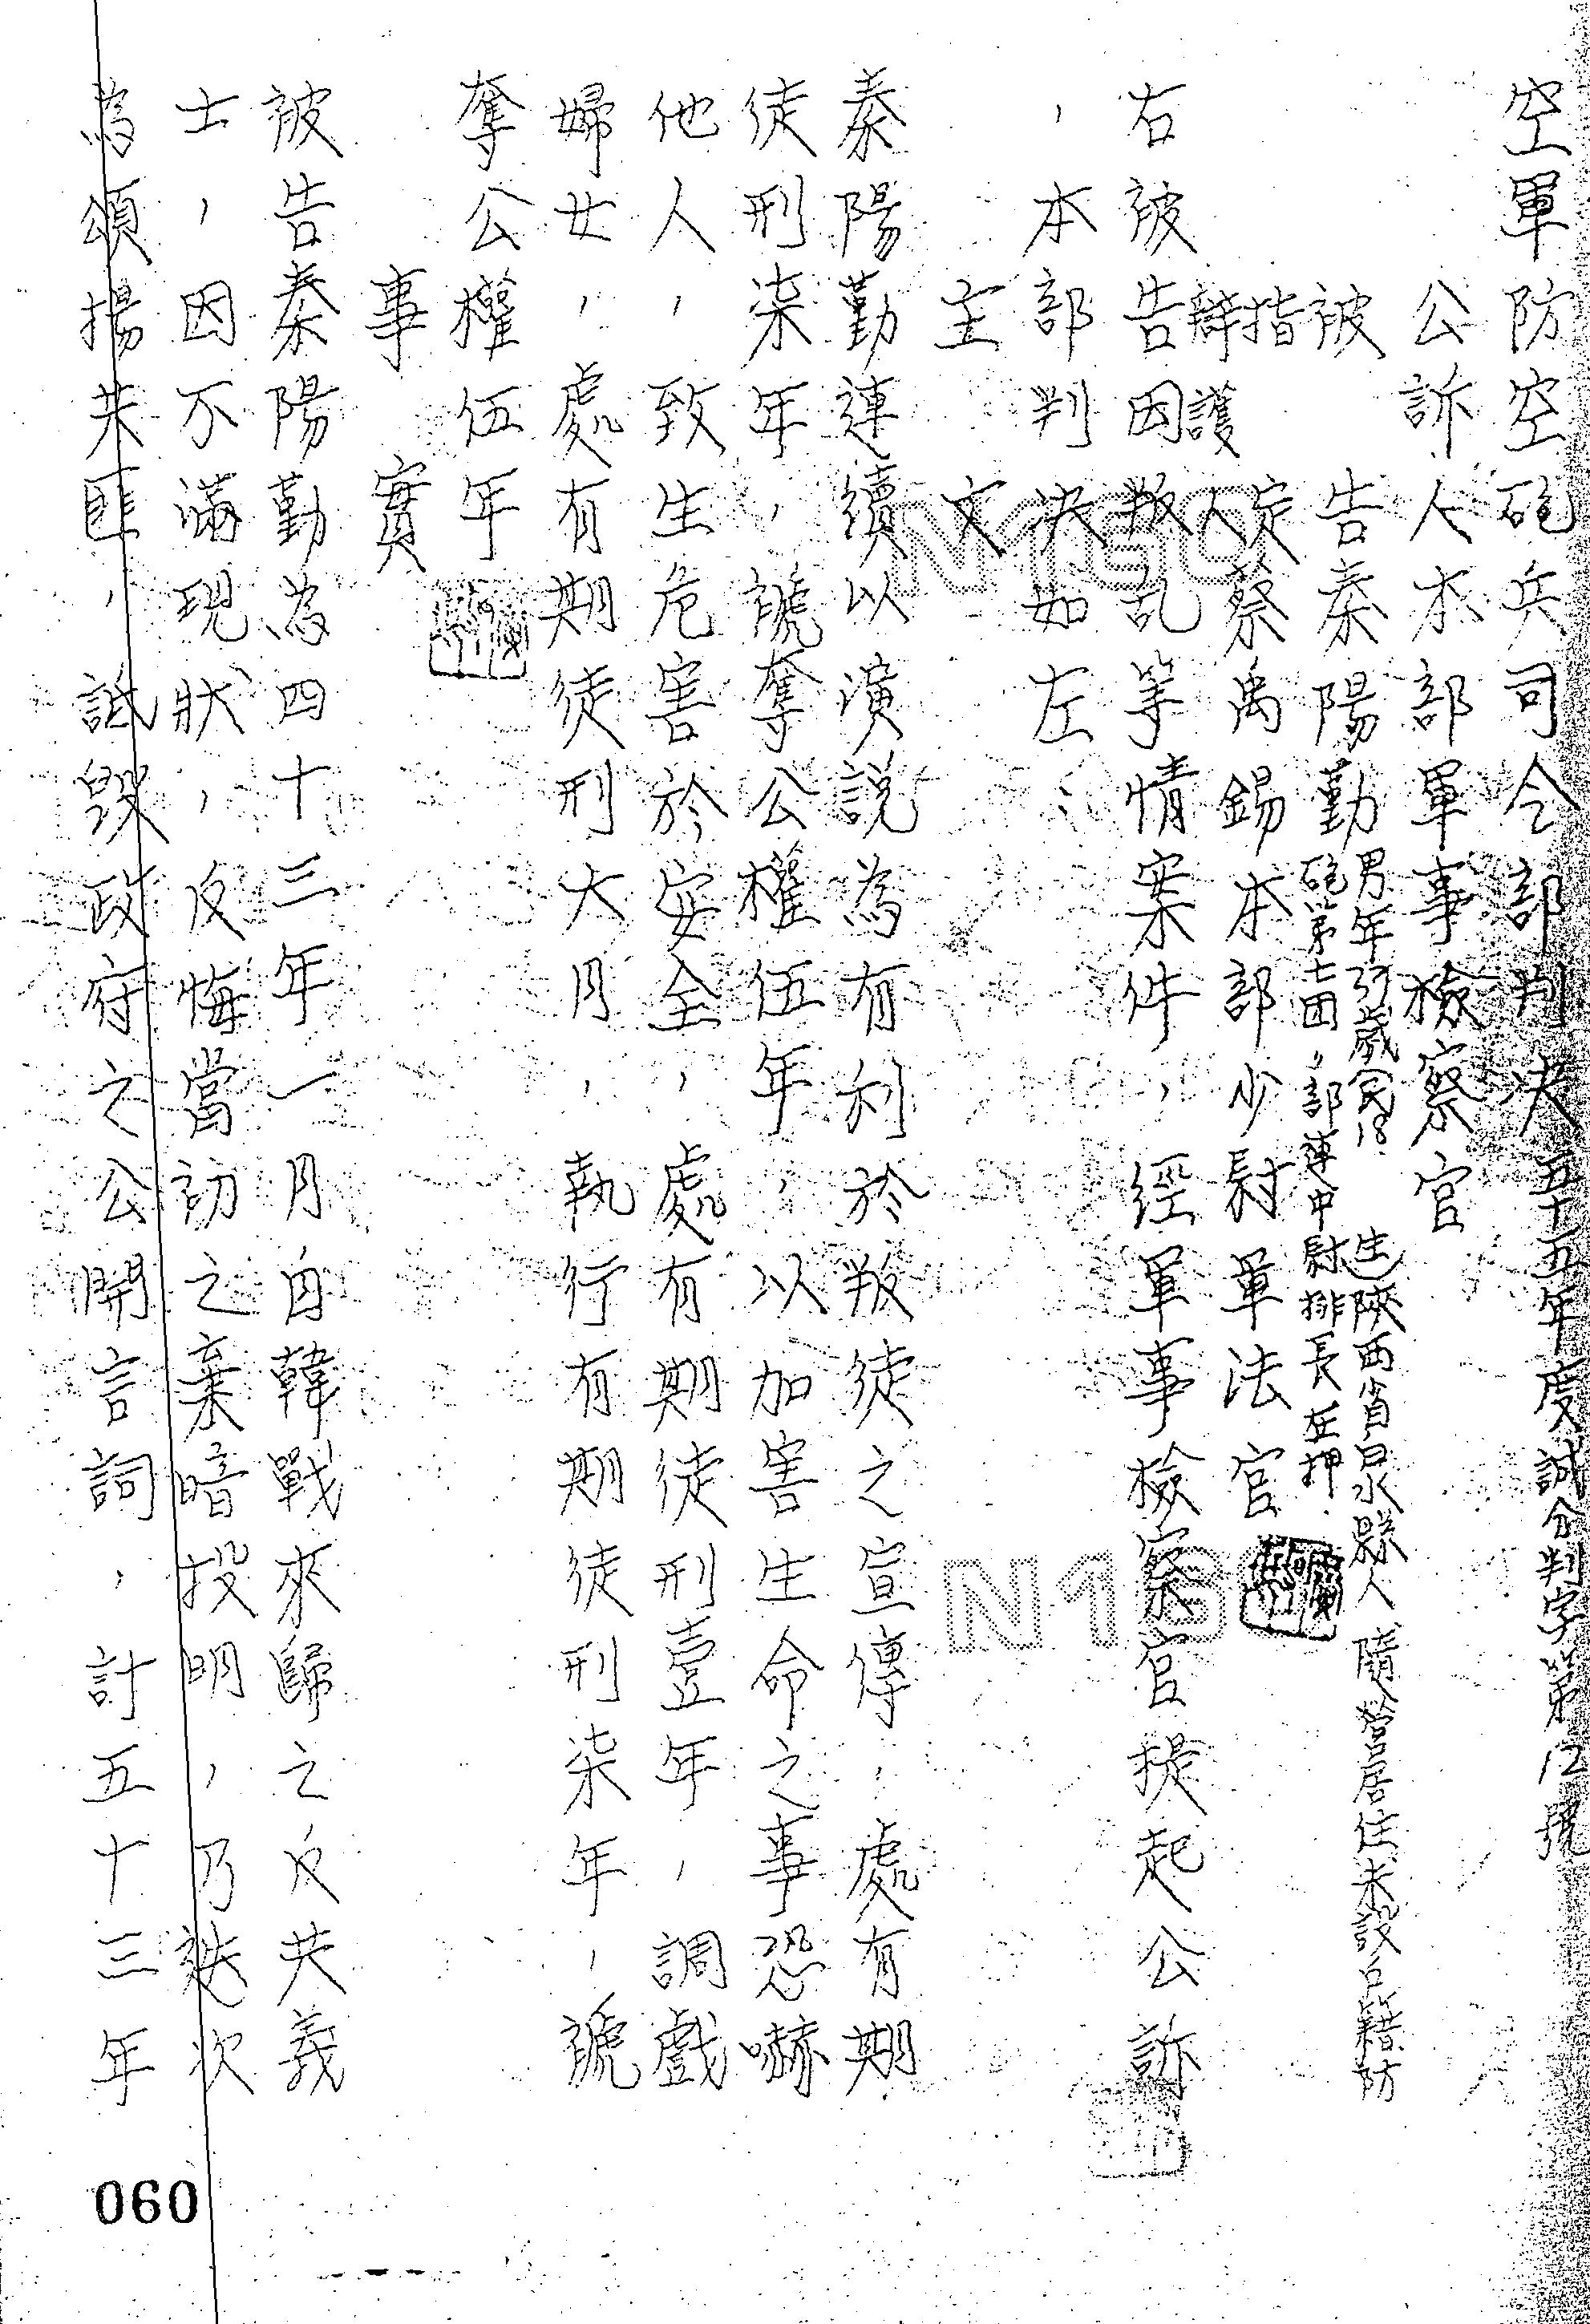 空軍防空砲兵司令部判決五十五年度誠分判字第12號
公訴人本部軍事檢察官
被告秦陽勤
男年35歲民18.生陝西省白水縣人隨營居住未設戶籍防
砲第七團〃部連中尉排長在押.
指定辯護人蔡禹錫本部少尉軍法官
右被告因叛乱等情案件，經軍事檢察官提起公訴
，本部判決如左：
主文
秦陽勤連續以演說為有利於叛徒之宣傳，處有期
徒刑柒年，褫奪公權伍年，以加害生命之事恐嚇
他人，致生危害於安全，處有期徒刑壹年，調戲
婦女，處有期徒刑六月，執行有期徒刑柒年，褫
奪公權伍年
事實
被告秦陽勤為四十三年一月自韓戰來歸之反共義
士，因不滿現狀，反悔當初之棄暗投明，乃迭次
為頌揚共匪，詆毀政府之公開言詞，計五十三年
060
N160
N16